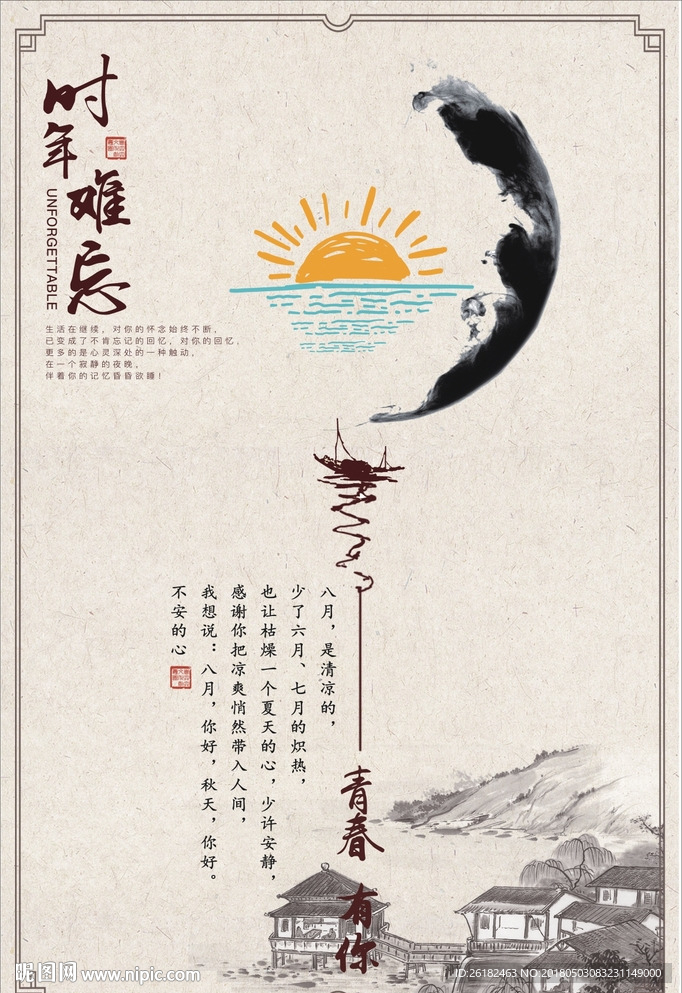 时年
难忘
UNFORGETTABLE
生活在继续，对你的怀念始终不断，
已变成了不肯忘记的回忆，对你的回忆，
更多的是心灵深处的一种触动，
在一个寂静的夜晚，
伴着你的记忆昏昏欲睡！
八月，是清凉的，
少了六月、七月的炽热，
也让枯燥一个夏天的心，少许安静，
感谢你把凉爽悄然带入人间，
我想说：八月，你好，秋天，你好。
不安的心
青春
有你
昵图网 www.nipic.com
ID:26182463 NO:20180503083231149000